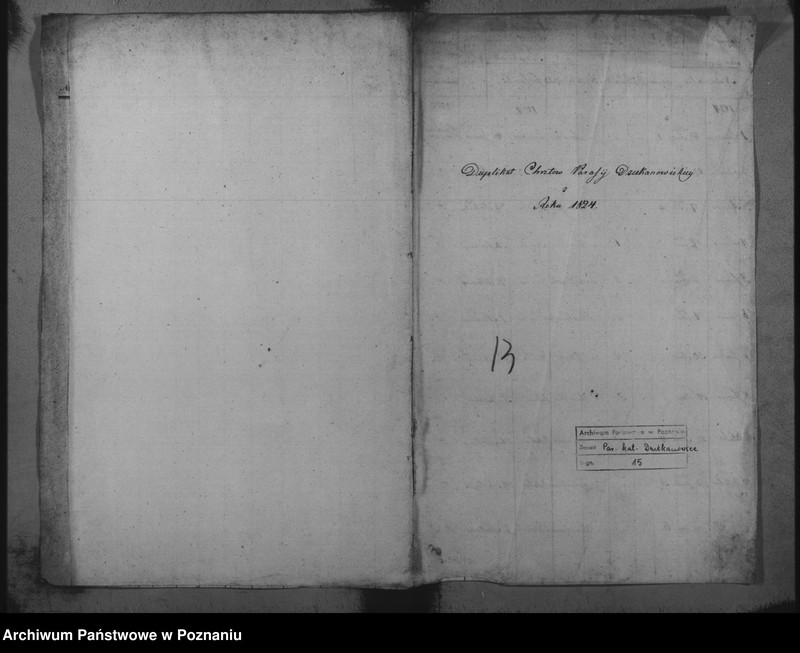 Duplikat Chrztow Parafij Dziekanowickiey
z
Roku 1824.
13
Archiwum Państwowe w Poznaniu
Zespół Par. kat. Dziekanowice
Sygn. 15
Archiwum Państwowe w Poznaniu